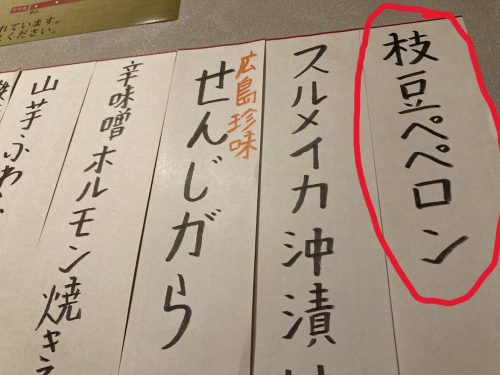 枝豆ペペロン
スルメイカ沖漬け
広島珍味
せんじがら
辛味噌ホルモン焼き
山芋ふわ
れています。
ください。